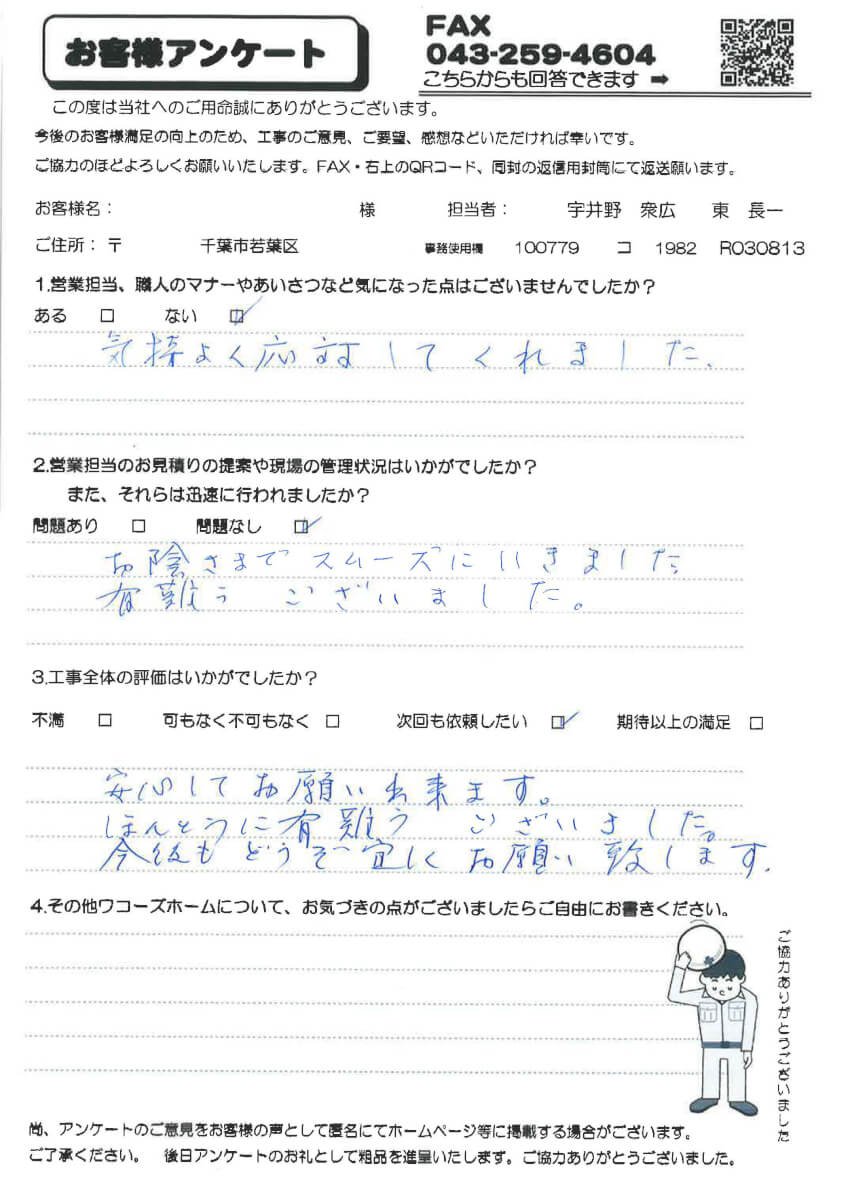 お客様アンケート
FAX
043-259-4604
こちらからも回答できます ➡
この度は当社へのご用命誠にありがとうございます。
今後のお客様満足の向上のため、工事のご意見、ご要望、感想などいただければ幸いです。
ご協力のほどよろしくお願いいたします。FAX・右上のQRコード、同封の返信用封筒にて返送願います。
お客様名： 様 担当者： 宇井野 衆広 東 長一
ご住所：〒 千葉市若葉区 事務使用欄 100779 コ 1982 R030813
1.営業担当、職人のマナーやあいさつなど気になった点はございませんでしたか？
ある □ ない □✓
気持よく応対してくれました.
2.営業担当のお見積りの提案や現場の管理状況はいかがでしたか？
また、それらは迅速に行われましたか？
問題あり □ 問題なし □✓
お陰さまでスムーズにいきました
有難うございました。
3.工事全体の評価はいかがでしたか？
不満 □ 可もなく不可もなく □ 次回も依頼したい □✓ 期待以上の満足 □
安心してお願い出来ます。
ほんとうに有難うございました。
今後もどうぞ宜しくお願い致します.
4.その他ワコーズホームについて、お気づきの点がございましたらご自由にお書きください。
ご協力ありがとうございました
尚、アンケートのご意見をお客様の声として匿名にてホームページ等に掲載する場合がございます。
ご了承ください。 後日アンケートのお礼として粗品を進呈いたします。ご協力ありがとうございました。